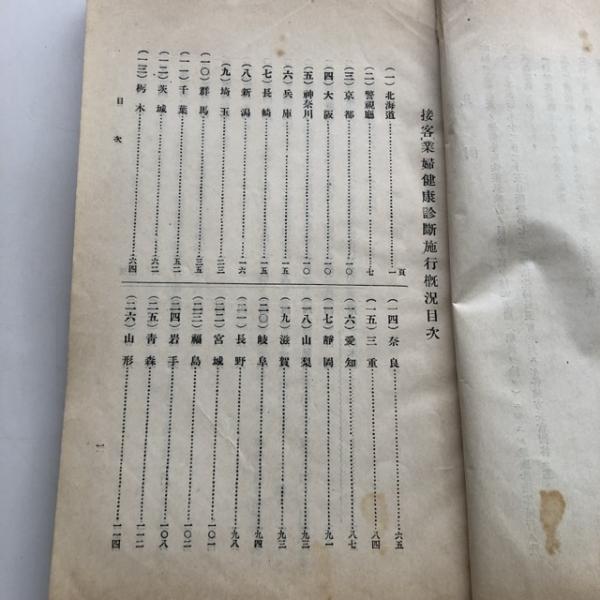 接客業婦健康診斷施行概況目次
(一)北海道……一頁
(二)警視廳……七
(三)京都……一〇
(四)大阪……一〇
(五)神奈川……一〇
(六)兵庫……一五
(七)長崎……一五
(八)新潟……一六
(九)埼玉……二三
(一〇)群馬……三五
(一一)千葉……五二
(一二)茨城……六二
(一三)栃木……六四
(一四)奈良……六五
(一五)三重……八四
(一六)愛知……八七
(一七)靜岡……九一
(一八)山梨……九三
(一九)滋賀……九三
(二〇)岐阜……九四
(二一)長野……九八
(二二)宮城……一〇一
(二三)福島……一〇二
(二四)岩手……一〇八
(二五)青森……一一二
(二六)山形……一一四
目次
一